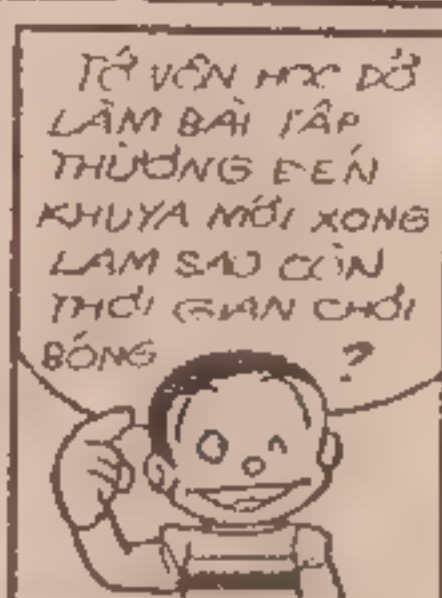 TỚ VỐN HỌC DỞ
LÀM BÀI TẬP
THƯỜNG ĐẾN
KHUYA MỚI XONG
LÀM SAO CÒN
THỜI GIAN CHƠI
BÓNG ?